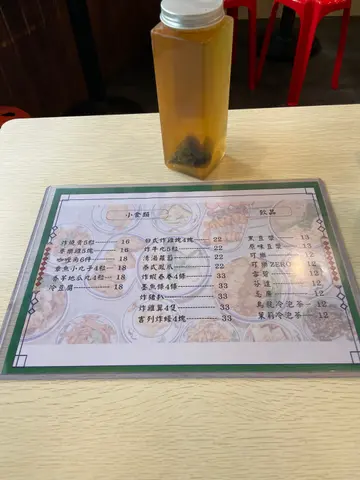 小食類
炸燒賣5粒 16
麥樂雞5塊 18
咖喱角6件 18
章魚小丸子4粒 18
香芋地瓜丸4粒 18
冷豆腐 18
台式炸雞塊4塊 22
炸牛丸5粒 22
清湯蘿蔔 22
泰式鳳爪 22
炸蝦春卷4條 33
墨魚條4條 33
炸豬扒 33
炸雞翼4隻 33
吉列炸蠔4塊 33
飲品
黑豆漿 13
原味豆漿 13
可樂 12
可樂ZERO 12
雪碧 12
芬達 12
忌廉 12
烏龍冷泡茶 12
茉莉冷泡茶 12